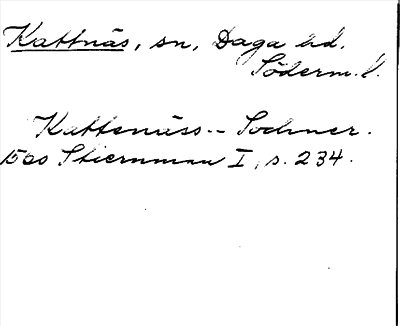 Kattnäs, sn, Daga hd.
Söderm. l.
Kattenäss -- Sochner.
1500 Stiernman I, s. 234.